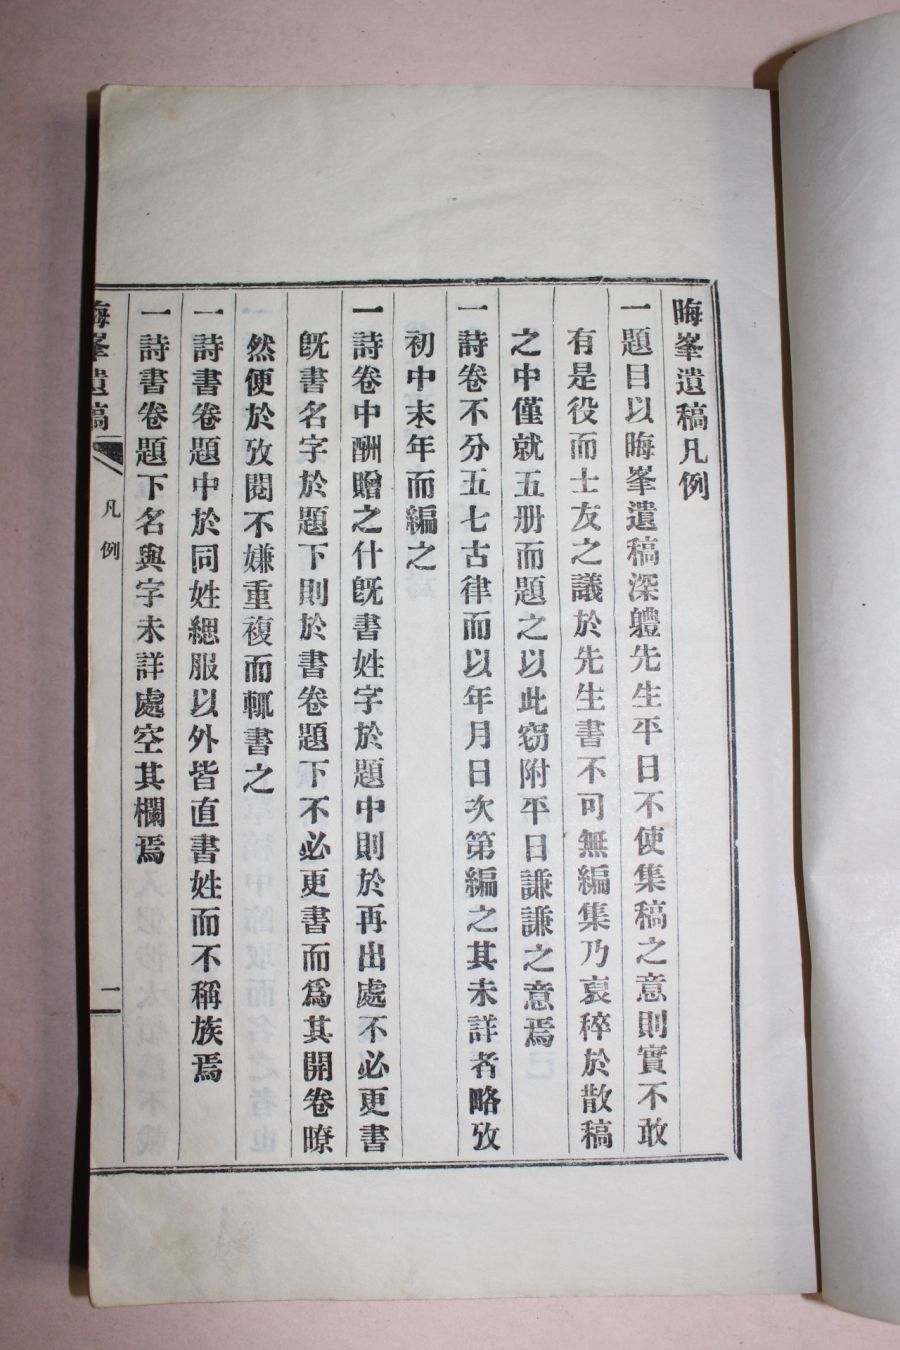 晦峯遺稿凡例
一題目以晦峯遺稿深軆先生平日不使集稿之意則實不敢
有是役而士友之議於先生書不可無編集乃裒稡於散稿
之中僅就五册而題之以此窃附平日謙謙之意焉
一詩卷不分五七古律而以年月日次第編之其未詳者略攷
初中末年而編之
一詩卷中酬贈之什旣書姓字於題中則於再出處不必更書
旣書名字於題下則於書卷題下不必更書而爲其開卷瞭
然便於攷閱不嫌重複而輒書之
一詩書卷題中於同姓緦服以外皆直書姓而不稱族焉
一詩書卷題下名與字未詳處空其欄焉
晦峯遺稿
凡例
一